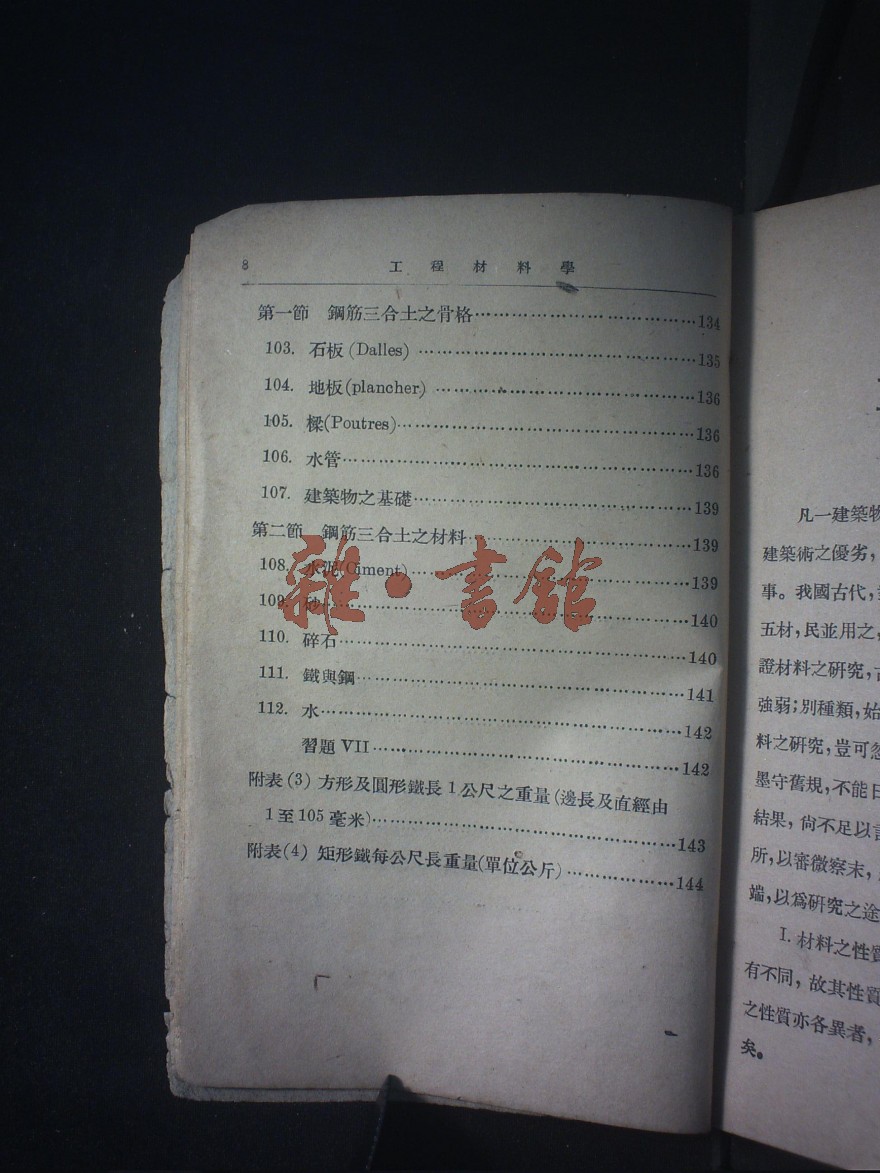 8 工程材料學
第一節 鋼筋三合土之骨格……134
103. 石板 (Dalles) ……135
104. 地板(plancher) ……136
105. 樑(Poutres)……136
106. 水管……136
107. 建築物之基礎……139
第二節 鋼筋三合土之材料……139
108. 水泥(Ciment)……139
109. 砂……140
110. 碎石……140
111. 鐵與鋼……141
112. 水……142
習題 VII……142
附表(3) 方形及圓形鐵長1公尺之重量(邊長及直經由
1至105毫米)……143
附表(4) 矩形鐵每公尺長重量(單位公斤)……144
雜·書館
凡一建築物
建築術之優劣,
事。我國古代,
五材,民並用之,
證材料之研究,
強弱;別種類,始
料之研究,豈可忽
墨守舊規,不能日
結果,尙不足以
所,以審微察末,
端,以爲研究之途
I. 材料之性質
有不同,故其性質
之性質亦各異者,
矣。